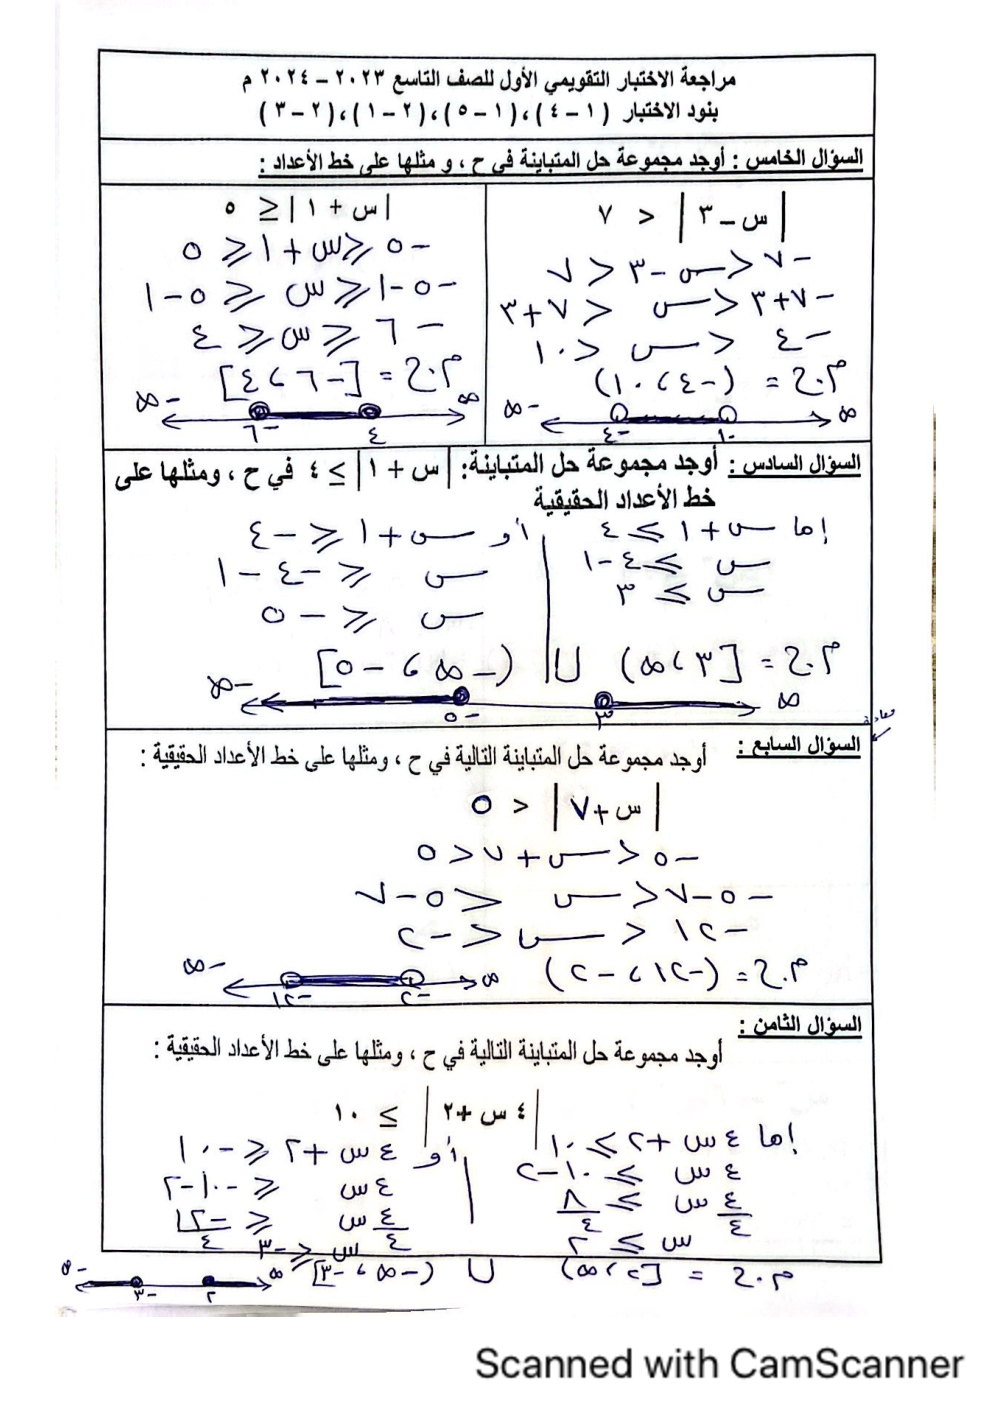 مراجعة الاختبار التقويمي الأول للصف التاسع ٢٠٢٣ – ٢٠٢٤ م
بنود الاختبار ( ١ – ٤ ) ، ( ١ – ٥ ) ، ( ٢ – ١ ) ، ( ٢ – ٣ )
السؤال الخامس : أوجد مجموعة حل المتباينة في ح ، و مثلها على خط الأعداد :
| س – ٣ | < ٧
-٧ < س - ٣ < ٧
-٧+٣ < س < ٧+٣
-٤ < س < ١٠
م.ح = (-٤ ، ١٠)
-∞ ∞
-٤ ١٠
| س + ١ | ≤ ٥
-٥ ≤ س + ١ ≤ ٥
-٥-١ ≤ س ≤ ٥-١
-٦ ≤ س ≤ ٤
م.ح = [-٦ ، ٤]
-∞ ∞
-٦ ٤
السؤال السادس : أوجد مجموعة حل المتباينة: | س + ١ | ≥ ٤ في ح ، ومثلها على
خط الأعداد الحقيقية
إما س + ١ ≥ ٤ أو س + ١ ≤ -٤
س ≥ ٤-١ س ≤ -٤-١
س ≥ ٣ س ≤ -٥
م.ح = [٣ ، ∞) ∪ (-∞ ، -٥]
-∞ ∞
-٥ ٣
السؤال السابع :
أوجد مجموعة حل المتباينة التالية في ح ، ومثلها على خط الأعداد الحقيقية :
| س + ٧ | < ٥
-٥ < س + ٧ < ٥
-٥-٧ < س < ٥-٧
-١٢ < س < -٢
م.ح = (-١٢ ، -٢)
-∞ ∞
-١٢ -٢
السؤال الثامن :
أوجد مجموعة حل المتباينة التالية في ح ، ومثلها على خط الأعداد الحقيقية :
| ٤ س + ٢ | ≥ ١٠
إما ٤ س + ٢ ≥ ١٠ أو ٤ س + ٢ ≤ -١٠
٤ س ≥ ١٠-٢ ٤ س ≤ -١٠-٢
٤/٤ س ≥ ٨/٤ ٤/٤ س ≤ -١٢/٤
س ≥ ٢ س ≤ -٣
م.ح = [٢ ، ∞) ∪ (-∞ ، -٣]
-∞ ∞
-٣ ٢
Scanned with CamScanner